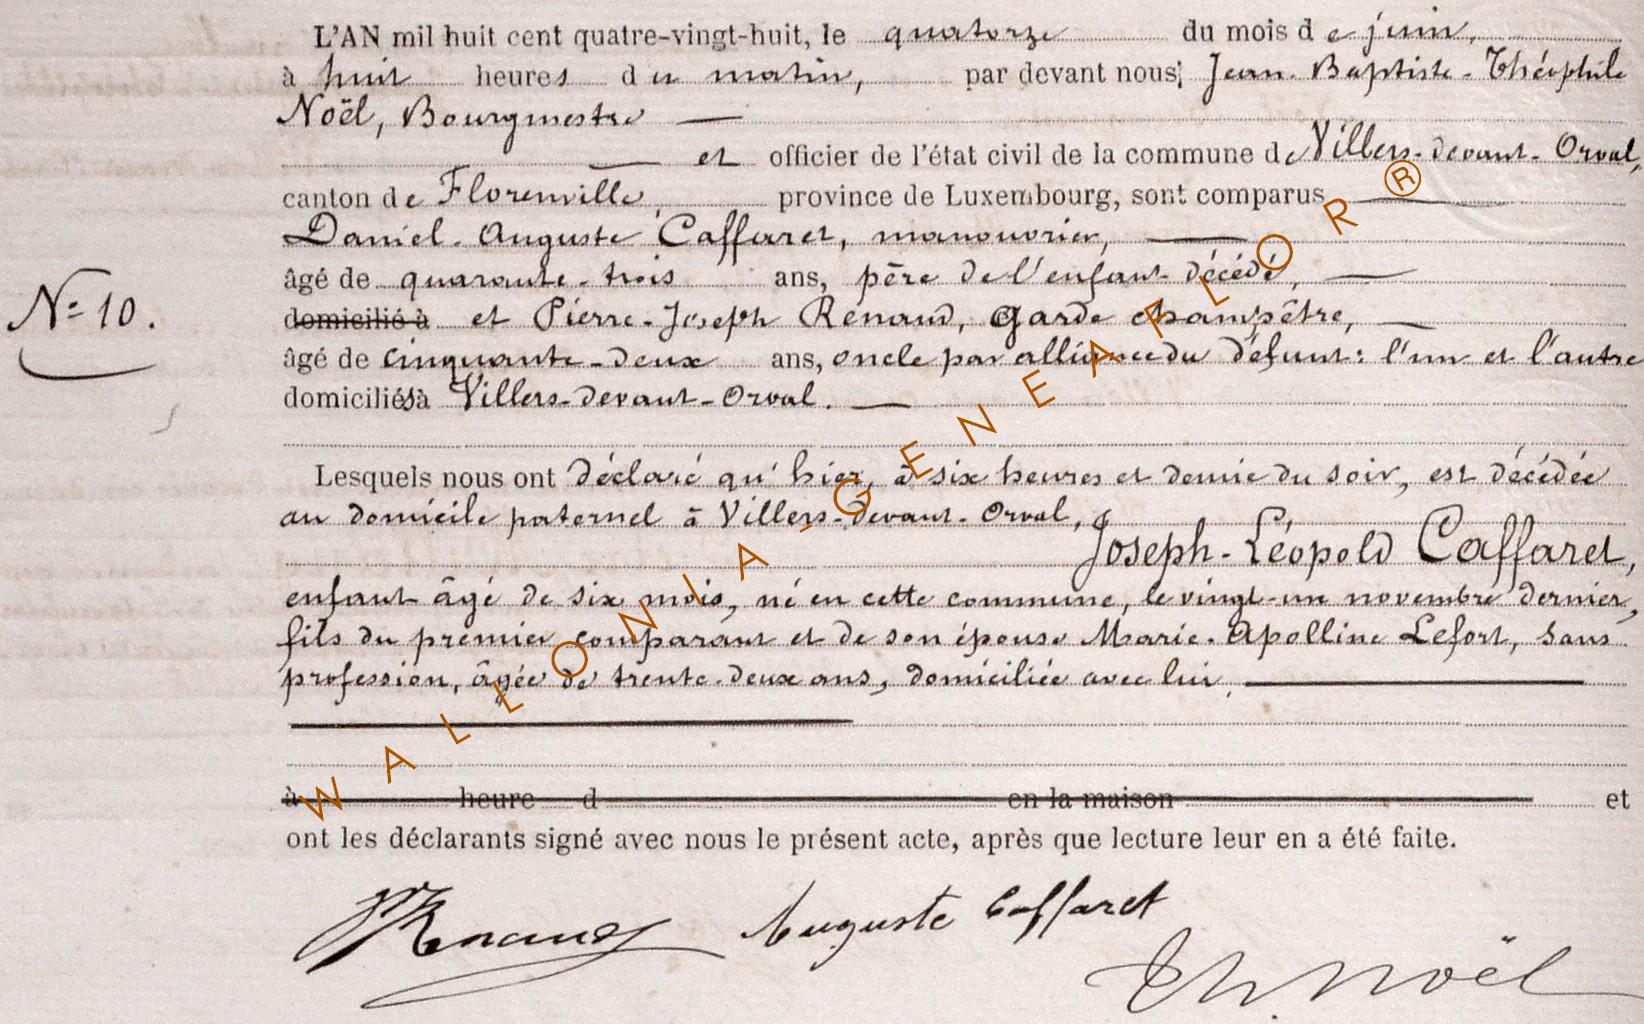 L'AN mil huit cent quatre-vingt-huit, le quatorze du mois de juin,
à huit heures du matin, par devant nous, Jean-Baptiste-Théophile
Noël, Bourgmestre
et officier de l'état civil de la commune de Villers-devant-Orval,
canton de Florenville, province de Luxembourg, sont comparus
Daniel-Auguste Caffaret, manouvrier,
âgé de quarante-trois ans, père de l'enfant décédé,
N° 10.
domicilié à et Pierre-Joseph Renaud, Garde champêtre,
âgé de cinquante-deux ans, oncle par alliance du défunt: l'un et l'autre
domiciliés à Villers-devant-Orval.
Lesquels nous ont déclaré qu'hier, à six heures et demie du soir, est décédée
au domicile paternel à Villers-devant-Orval,
Joseph-Léopold Caffaret,
enfant âgé de six mois, né en cette commune, le vingt-un novembre dernier,
fils du premier comparant et de son épouse Marie-Apolline Lefort, sans
profession, âgée de trente-deux ans, domiciliée avec lui,
à heure d en la maison et
ont les déclarants signé avec nous le présent acte, après que lecture leur en a été faite.
PJRenaud Auguste Caffaret
Th Noël
WALLONIA-GENEAFLOR®